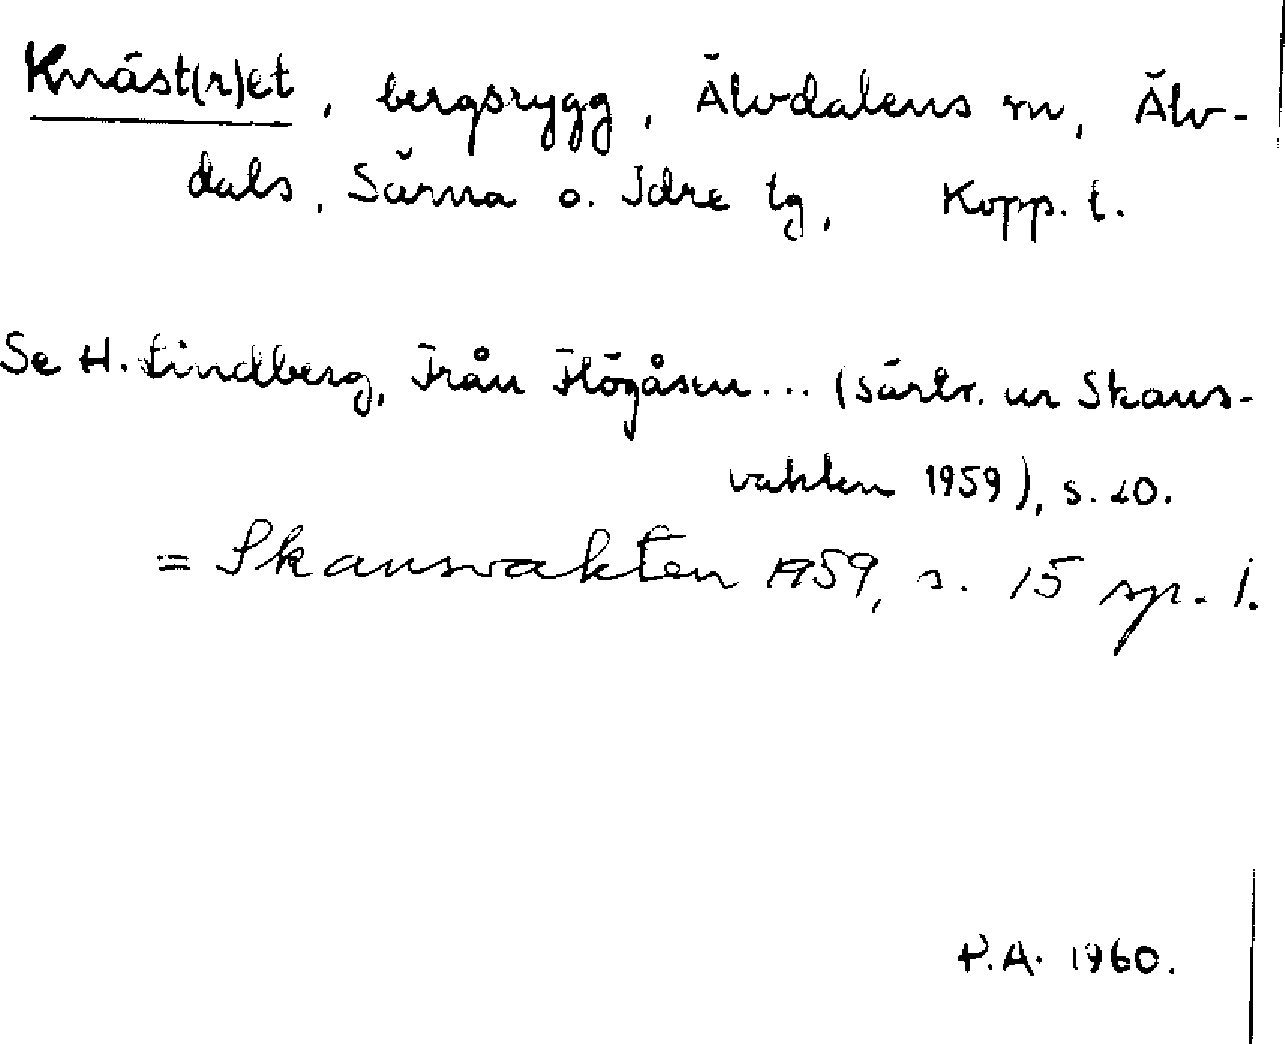 Knäst(r)et, bergsrygg, Älvdalens sn, Älv-
dals, Särna o. Idre tg, Kopp. l.
Se H. Lindberg, Från Högåsen... (särtr. ur Skans-
vakten 1959), s. 20.
= Skansvakten 1959, s. 15 sp. 1.
P.A. 1960.